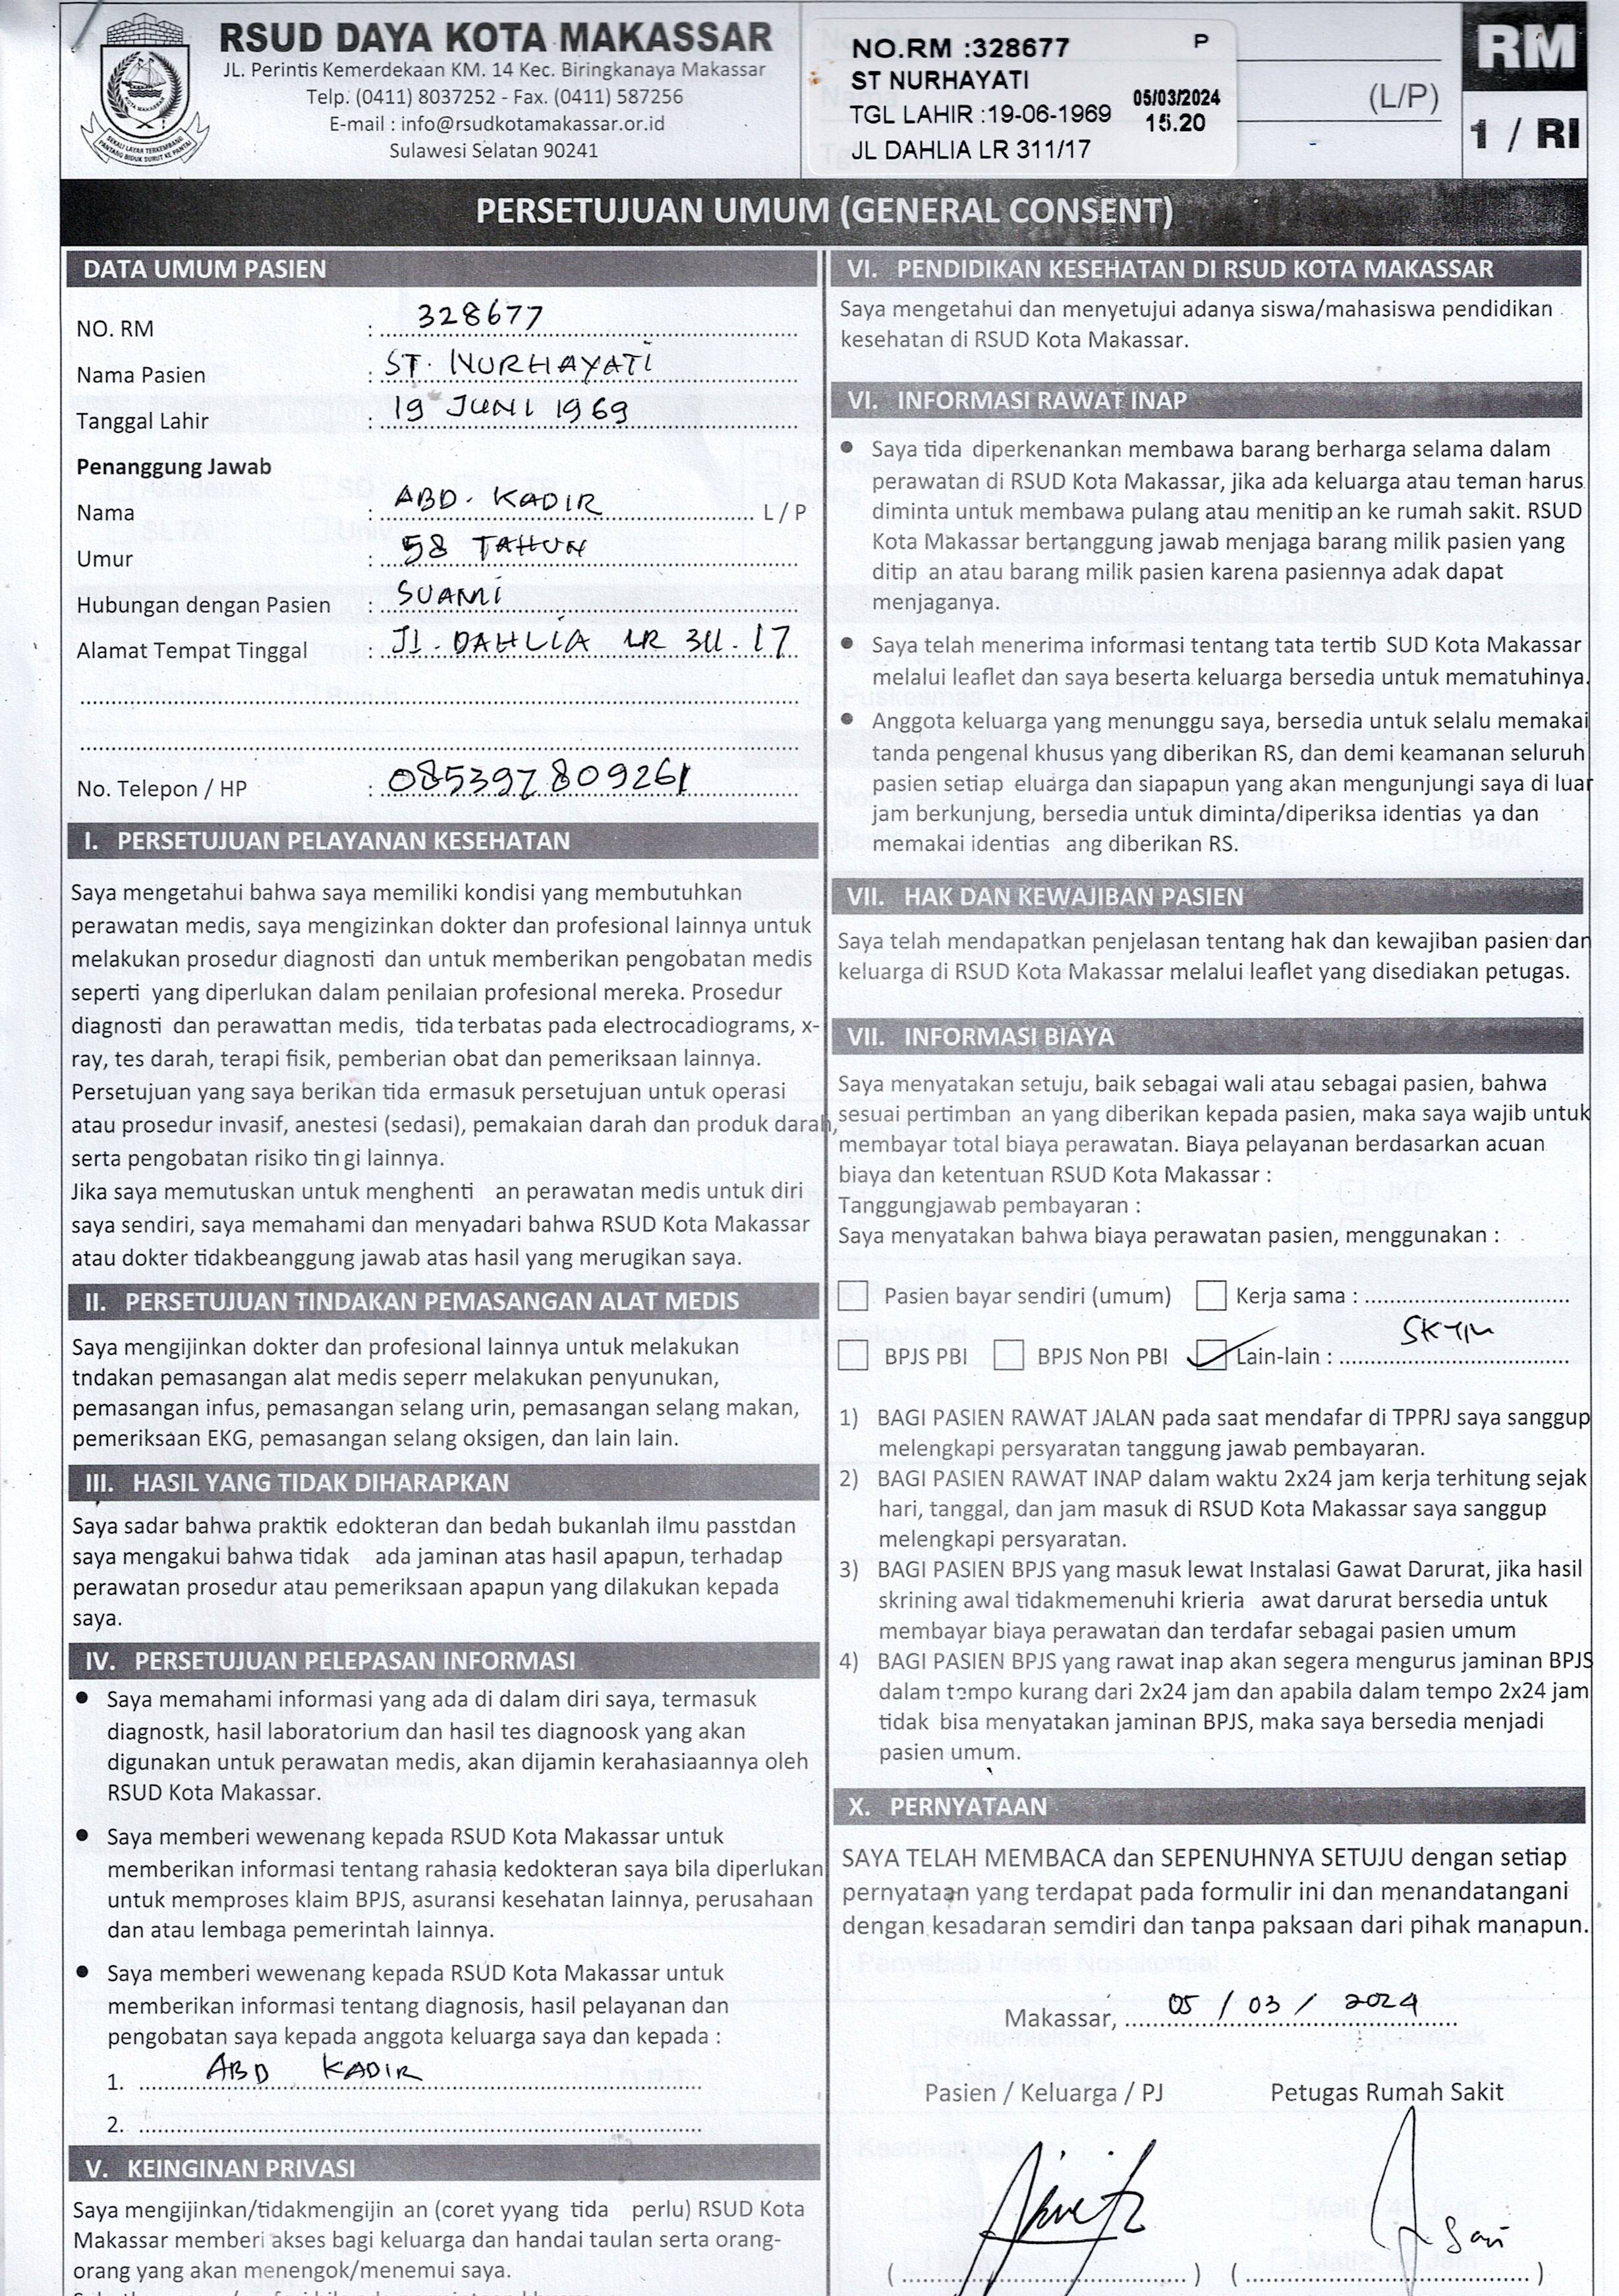 RSUD DAYA KOTA MAKASSAR
JL. Perintis Kemerdekaan KM. 14 Kec. Biringkanaya Makassar
Telp. (0411) 8037252 - Fax. (0411) 587256
E-mail : info@rsudkotamakassar.or.id
Sulawesi Selatan 90241
NO.RM :328677 P
ST NURHAYATI
TGL LAHIR :19-06-1969
05/03/2024
15.20
JL DAHLIA LR 311/17
(L/P)
RM
1 / RI
PERSETUJUAN UMUM (GENERAL CONSENT)
DATA UMUM PASIEN
NO. RM : 328677
Nama Pasien : ST. NURHAYATI
Tanggal Lahir : 19 JUNI 1969
Penanggung Jawab
Nama ABD. KADIR L / P
Umur : 58 TAHUN
Hubungan dengan Pasien : SUAMI
Alamat Tempat Tinggal : Jl. DAHLIA LR 311.17
No. Telepon / HP : 085397809261
I. PERSETUJUAN PELAYANAN KESEHATAN
Saya mengetahui bahwa saya memiliki kondisi yang membutuhkan
perawatan medis, saya mengizinkan dokter dan profesional lainnya untuk
melakukan prosedur diagnosti dan untuk memberikan pengobatan medis
seperti yang diperlukan dalam penilaian profesional mereka. Prosedur
diagnosti dan perawattan medis, tida terbatas pada electrocadiograms, x-
ray, tes darah, terapi fisik, pemberian obat dan pemeriksaan lainnya.
Persetujuan yang saya berikan tida ermasuk persetujuan untuk operasi
atau prosedur invasif, anestesi (sedasi), pemakaian darah dan produk darah,
serta pengobatan risiko tin gi lainnya.
Jika saya memutuskan untuk menghenti an perawatan medis untuk diri
saya sendiri, saya memahami dan menyadari bahwa RSUD Kota Makassar
atau dokter tidakbeanggung jawab atas hasil yang merugikan saya.
II. PERSETUJUAN TINDAKAN PEMASANGAN ALAT MEDIS
Saya mengijinkan dokter dan profesional lainnya untuk melakukan
tndakan pemasangan alat medis seperr melakukan penyunukan,
pemasangan infus, pemasangan selang urin, pemasangan selang makan,
pemeriksaan EKG, pemasangan selang oksigen, dan lain lain.
III. HASIL YANG TIDAK DIHARAPKAN
Saya sadar bahwa praktik edokteran dan bedah bukanlah ilmu passtdan
saya mengakui bahwa tidak ada jaminan atas hasil apapun, terhadap
perawatan prosedur atau pemeriksaan apapun yang dilakukan kepada
saya.
IV. PERSETUJUAN PELEPASAN INFORMASI
● Saya memahami informasi yang ada di dalam diri saya, termasuk
diagnostk, hasil laboratorium dan hasil tes diagnoosk yang akan
digunakan untuk perawatan medis, akan dijamin kerahasiaannya oleh
RSUD Kota Makassar.
● Saya memberi wewenang kepada RSUD Kota Makassar untuk
memberikan informasi tentang rahasia kedokteran saya bila diperlukan
untuk memproses klaim BPJS, asuransi kesehatan lainnya, perusahaan
dan atau lembaga pemerintah lainnya.
● Saya memberi wewenang kepada RSUD Kota Makassar untuk
memberikan informasi tentang diagnosis, hasil pelayanan dan
pengobatan saya kepada anggota keluarga saya dan kepada :
1. ABD KADIR
2.
V. KEINGINAN PRIVASI
Saya mengijinkan/tidakmengijin an (coret yyang tida perlu) RSUD Kota
Makassar memberi akses bagi keluarga dan handai taulan serta orang-
orang yang akan menengok/menemui saya.
VI. PENDIDIKAN KESEHATAN DI RSUD KOTA MAKASSAR
Saya mengetahui dan menyetujui adanya siswa/mahasiswa pendidikan
kesehatan di RSUD Kota Makassar.
VI. INFORMASI RAWAT INAP
● Saya tida diperkenankan membawa barang berharga selama dalam
perawatan di RSUD Kota Makassar, jika ada keluarga atau teman harus
diminta untuk membawa pulang atau menitip an ke rumah sakit. RSUD
Kota Makassar bertanggung jawab menjaga barang milik pasien yang
ditip an atau barang milik pasien karena pasiennya adak dapat
menjaganya.
● Saya telah menerima informasi tentang tata tertib SUD Kota Makassar
melalui leaflet dan saya beserta keluarga bersedia untuk mematuhinya.
● Anggota keluarga yang menunggu saya, bersedia untuk selalu memakai
tanda pengenal khusus yang diberikan RS, dan demi keamanan seluruh
pasien setiap eluarga dan siapapun yang akan mengunjungi saya di luar
jam berkunjung, bersedia untuk diminta/diperiksa identias ya dan
memakai identias ang diberikan RS.
VII. HAK DAN KEWAJIBAN PASIEN
Saya telah mendapatkan penjelasan tentang hak dan kewajiban pasien dan
keluarga di RSUD Kota Makassar melalui leaflet yang disediakan petugas.
VII. INFORMASI BIAYA
Saya menyatakan setuju, baik sebagai wali atau sebagai pasien, bahwa
sesuai pertimban an yang diberikan kepada pasien, maka saya wajib untuk
membayar total biaya perawatan. Biaya pelayanan berdasarkan acuan
biaya dan ketentuan RSUD Kota Makassar :
Tanggungjawab pembayaran :
Saya menyatakan bahwa biaya perawatan pasien, menggunakan :
Pasien bayar sendiri (umum) Kerja sama :
BPJS PBI BPJS Non PBI Lain-lain : SKTM
1) BAGI PASIEN RAWAT JALAN pada saat mendafar di TPPRJ saya sanggup
melengkapi persyaratan tanggung jawab pembayaran.
2) BAGI PASIEN RAWAT INAP dalam waktu 2x24 jam kerja terhitung sejak
hari, tanggal, dan jam masuk di RSUD Kota Makassar saya sanggup
melengkapi persyaratan.
3) BAGI PASIEN BPJS yang masuk lewat Instalasi Gawat Darurat, jika hasil
skrining awal tidakmemenuhi krieria awat darurat bersedia untuk
membayar biaya perawatan dan terdafar sebagai pasien umum
4) BAGI PASIEN BPJS yang rawat inap akan segera mengurus jaminan BPJS
dalam tempo kurang dari 2x24 jam dan apabila dalam tempo 2x24 jam
tidak bisa menyatakan jaminan BPJS, maka saya bersedia menjadi
pasien umum.
X. PERNYATAAN
SAYA TELAH MEMBACA dan SEPENUHNYA SETUJU dengan setiap
pernyataan yang terdapat pada formulir ini dan menandatangani
dengan kesadaran semdiri dan tanpa paksaan dari pihak manapun.
Makassar, 05 / 03 / 2024
Pasien / Keluarga / PJ Petugas Rumah Sakit
Sari